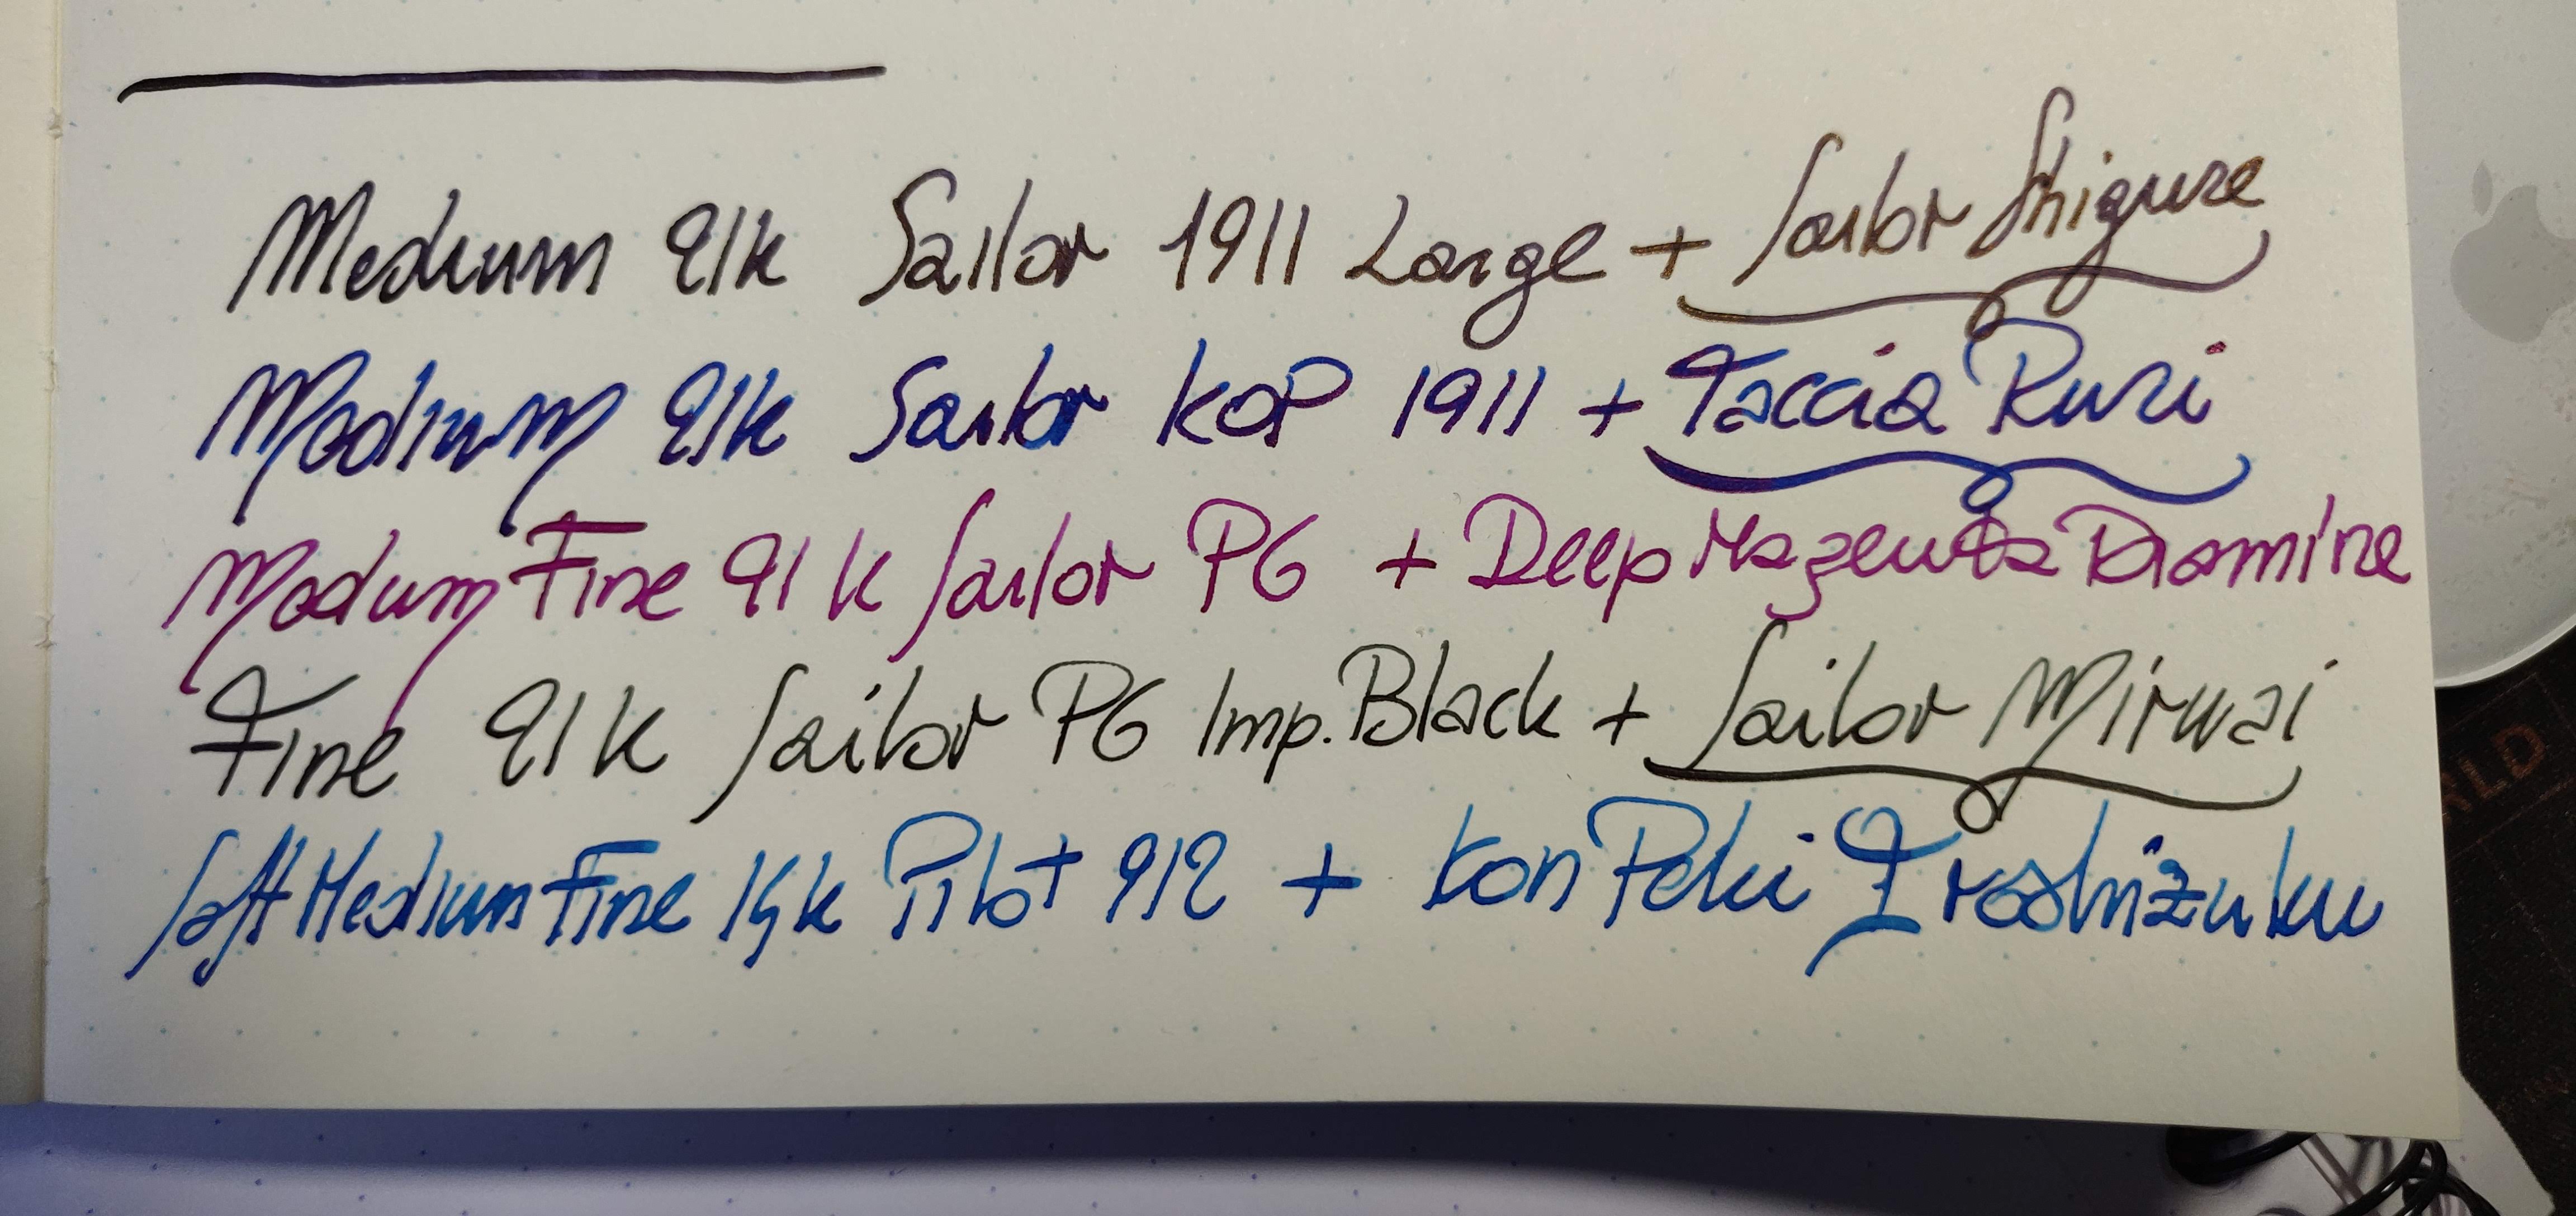 Medium 21k Sailor 1911 Large + Sailor Shigure
Medium 21k Sailor KOP 1911 + Taccia Ruri
Medium Fine 21k Sailor PG + Deep Magenta Diamine
Fine 21k Sailor PG Imp. Black + Sailor Miruai
Soft Medium Fine 14k Pilot 912 + Kon Peki Iroshizuku
RLD